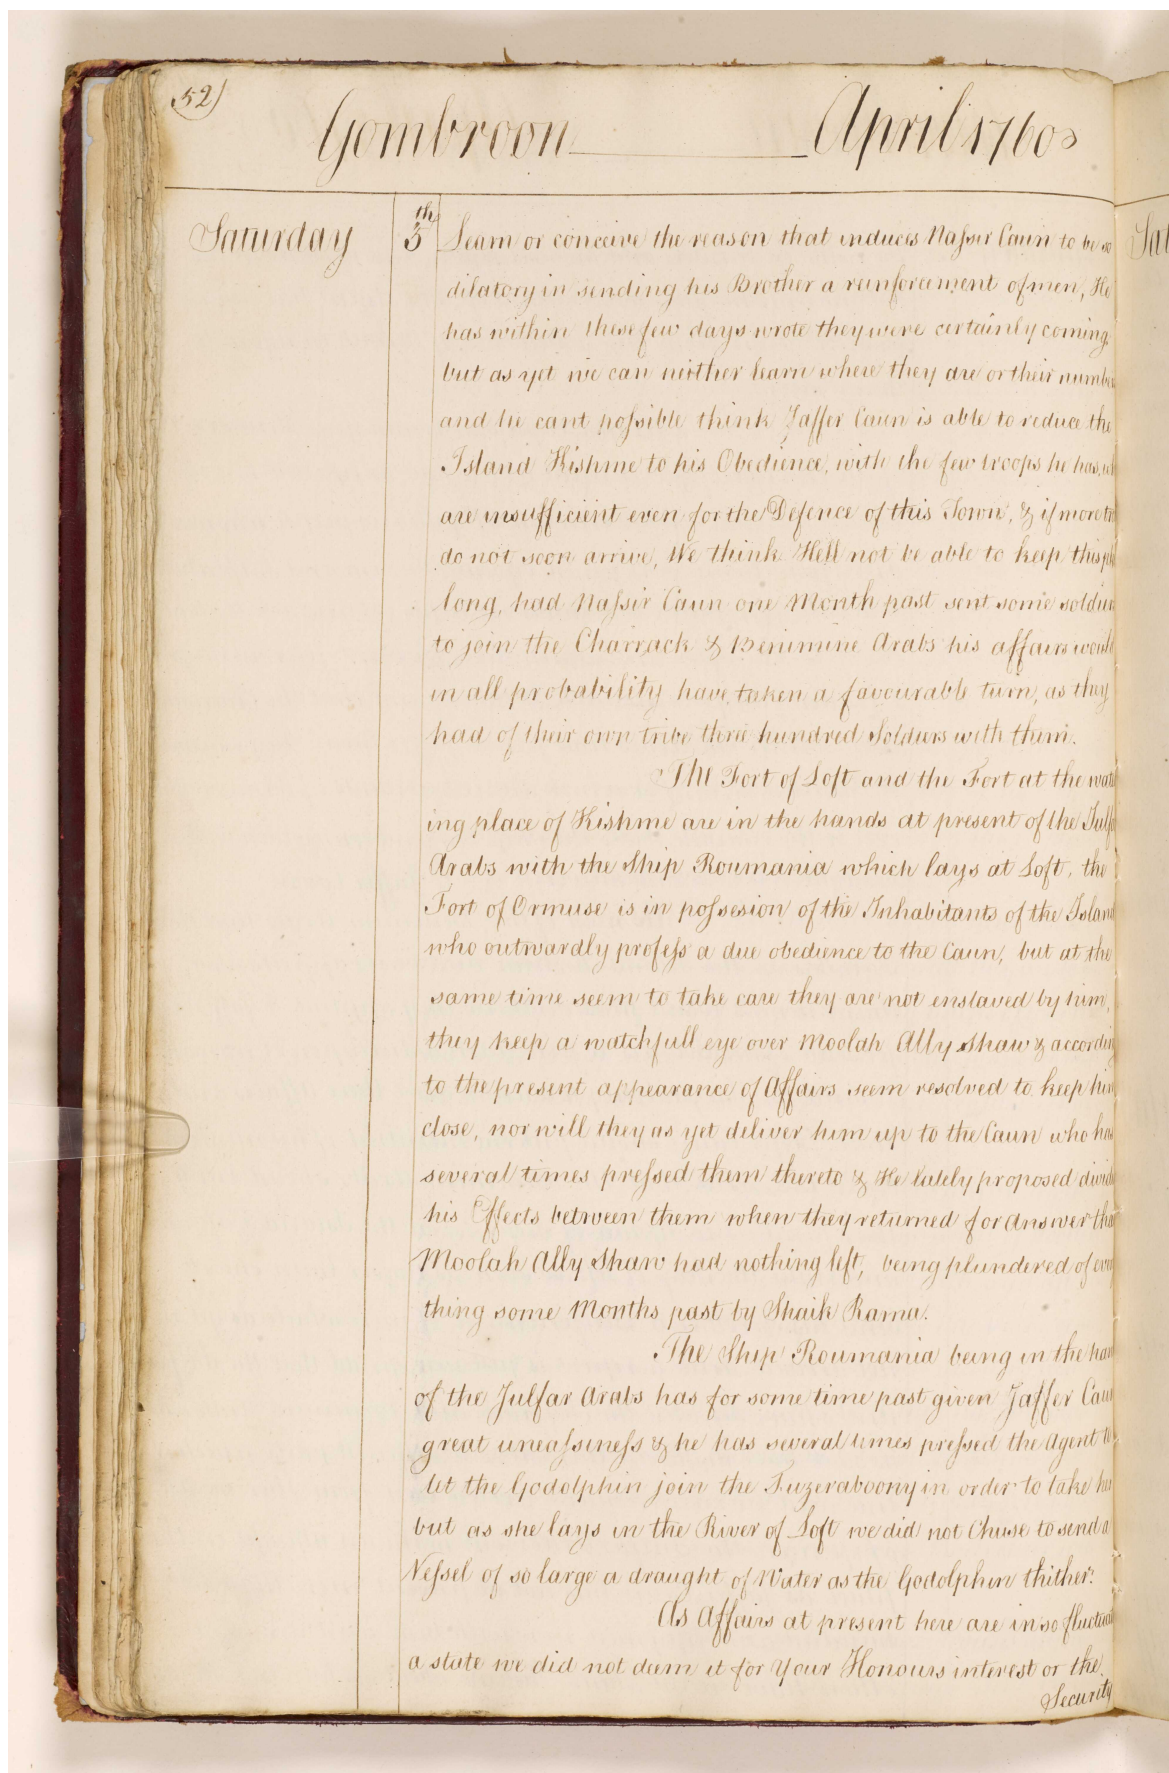 52
Gombroon April 1760
Saturday 5th Learn or conceive the reason that induces Nassir Caun to be so
dilatory in sending his Brother a reinforcement of men, He
has within these few days wrote they were certainly coming,
but as yet we can neither learn where they are or their number
and he cant possible think Jaffer Caun is able to reduce the
Island Kishme to his Obedience, with the few troops he has,
are insufficient even for the Defence of this Town, & if more
do not soon arrive, We think Hell not be able to keep this
long, had Nassir Caun one Month past sent some soldier
to join the Charrack & Benimine Arabs his affairs would
in all probability have taken a favourable turn, as they
had of their own tribe three hundred Soldiers with them.
The Fort of Loft and the Fort at the wat
ing place of Kishme are in the hands at present of the Julfa
Arabs with the Ship Roumania which lays at Loft, the
Fort of Ormuse is in possesion of the Inhabitants of the Island
who outwardly profess a due obedience to the Caun, but at the
same time seem to take care they are not enslaved by him,
they keep a watchfull eye over Moolah Ally Shaw & according
to the present appearance of Affairs seem resolved to keep him
close, nor will they as yet deliver him up to the Caun who has
several times pressed them thereto & He lately proposed divid
his Effects between them when they returned for answer tha
Moolah Ally Shaw had nothing left, being plundered of eve
thing some Months past by Shaik Rama.
The Ship Roumania being in the han
of the Julfar Arabs has for some time past given Jaffer Caun
great uneassiness & he has several times pressed the Agent to
let the Godolphin join the Fuzeraboony in order to take her
but as she lays in the River of Loft we did not Chuse to send a
Vessel of so large a draught of Water as the Godolphin thither.
As Affairs at present here are in so fluctuat
a state we did not deem it for Your Honours interest or the
Security
Sat